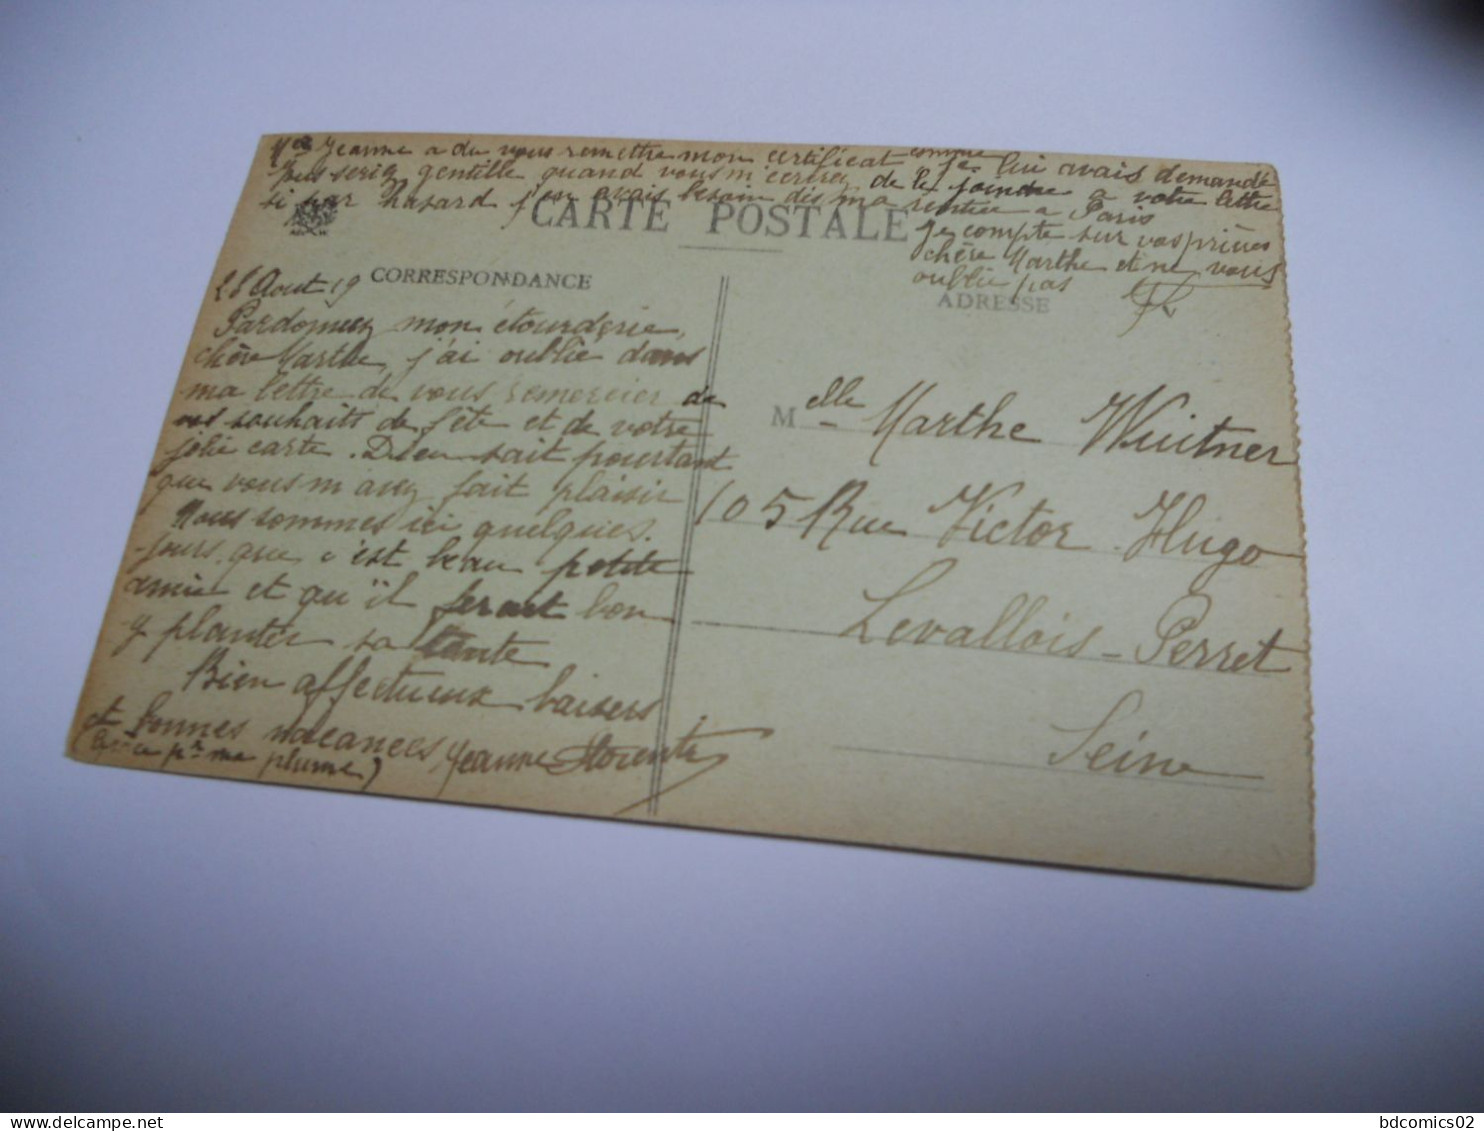 Jeanne a du vous remettre mon certificat comme je lui avais demandé
seriez gentille quand vous m'écrirez de le joindre à votre lettre
si par hasard j'en avais besoin dès ma rentrée à Paris
CARTE POSTALE
Je compte sur vos prières
chère Marthe et ne vous
oublie pas
ADRESSE
CORRESPONDANCE
28 Aout 19
Pardonnez mon étourderie,
chère Marthe, j'ai oublié dans
ma lettre de vous remercier de
vos souhaits de fête et de votre
jolie carte. Dieu sait pourtant
que vous m'avez fait plaisir
Nous sommes ici quelques
jours, que c'est beau petite
amie et qu'il ferait bon
y planter sa tente
Bien affectueux baisers
et bonnes vacances Jeanne
pr ma plume)
Melle Marthe Wuitner
105 Rue Victor Hugo
Levallois-Perret
Seine
bdcomics02